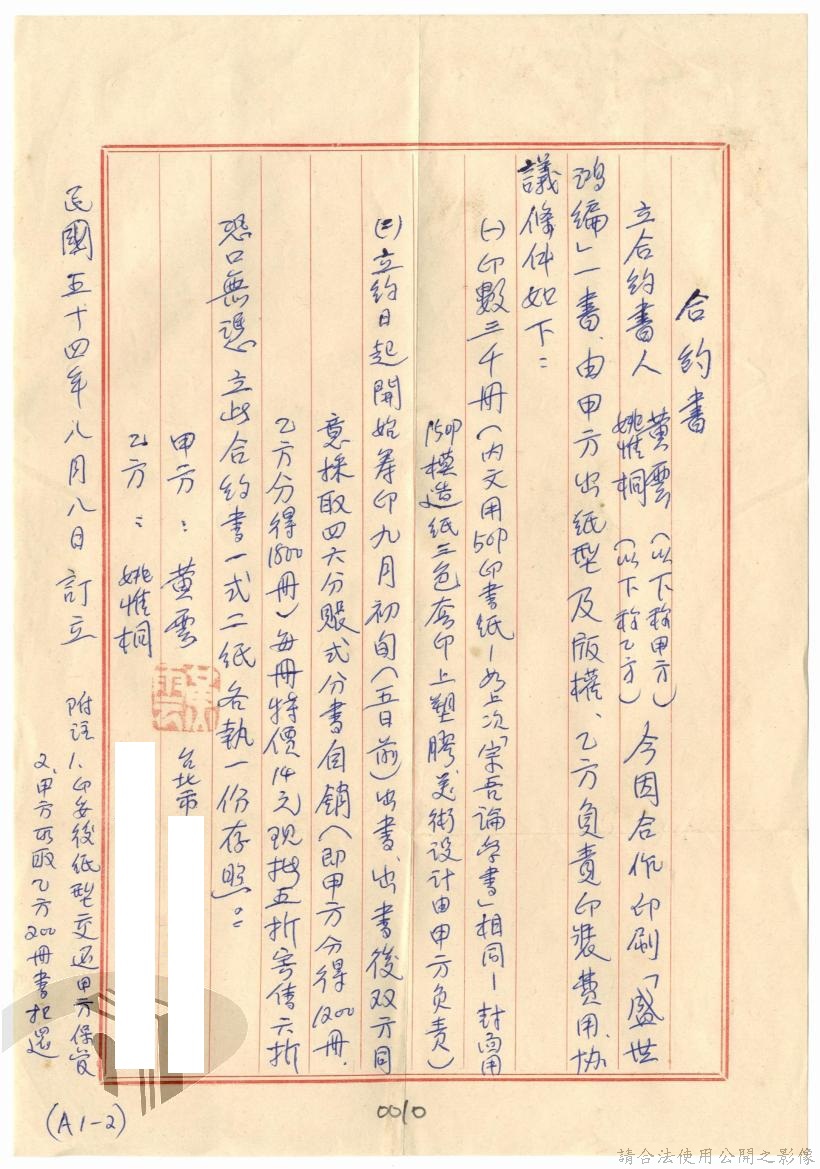 合約書
立合約書人 黃雲（以下称甲方）
姚惟桐（以下称乙方） 今因合作印刷「盛世
鴻編」一書、由甲方出紙型及版權、乙方負責印裝費用、協
議條件如下：
(一)印數三千冊（內文用50P印書紙－如上次「宗吾論学書」相同－封面用
150P模造紙三色套印上塑膠美術设计由甲方负责）
(二)立約日起開始筹印九月初旬（五日前）出書、出書後双方同
意採取四六分賬式分書自銷（即甲方分得1200冊、
乙方分得1800冊）每冊特價14元現批五折寄售六折
恐口無憑立此合約書一式二紙各執一份存照。：
甲方：黃雲 台北市
乙方：姚惟桐
民國五十四年八月八日訂立
附註1.印妥後纸型交还甲方保管
2.甲方取乙方200冊書
(A1-2)
0010
請合法使用公開之影像